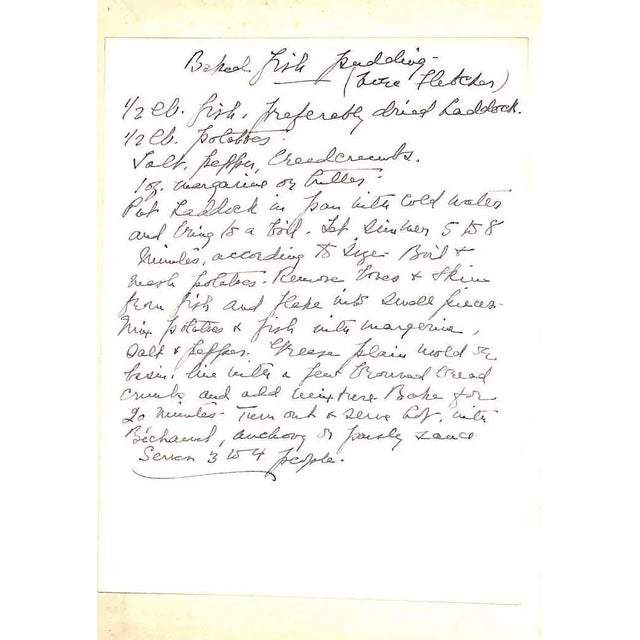 Baked fish pudding
(Fletcher)
1/2 lb. fish, preferably dried haddock.
1/2 lb. potatoes.
Salt, pepper, breadcrumbs.
1 oz. margarine or butter.
Put haddock in pan with cold water
and bring to a boil. Let simmer 5 to 8
minutes, according to size. Boil &
mash potatoes. Remove bones & skin
from fish and flake into small pieces.
Mix potatoes & fish with margerine,
salt & pepper. Grease plain mold or
basin, line with a few browned bread
crumbs and add mixture Bake for
20 minutes. Turn out & serve hot, with
Béchamel, anchovy or parsly sauce
Serves 3 to 4 people.